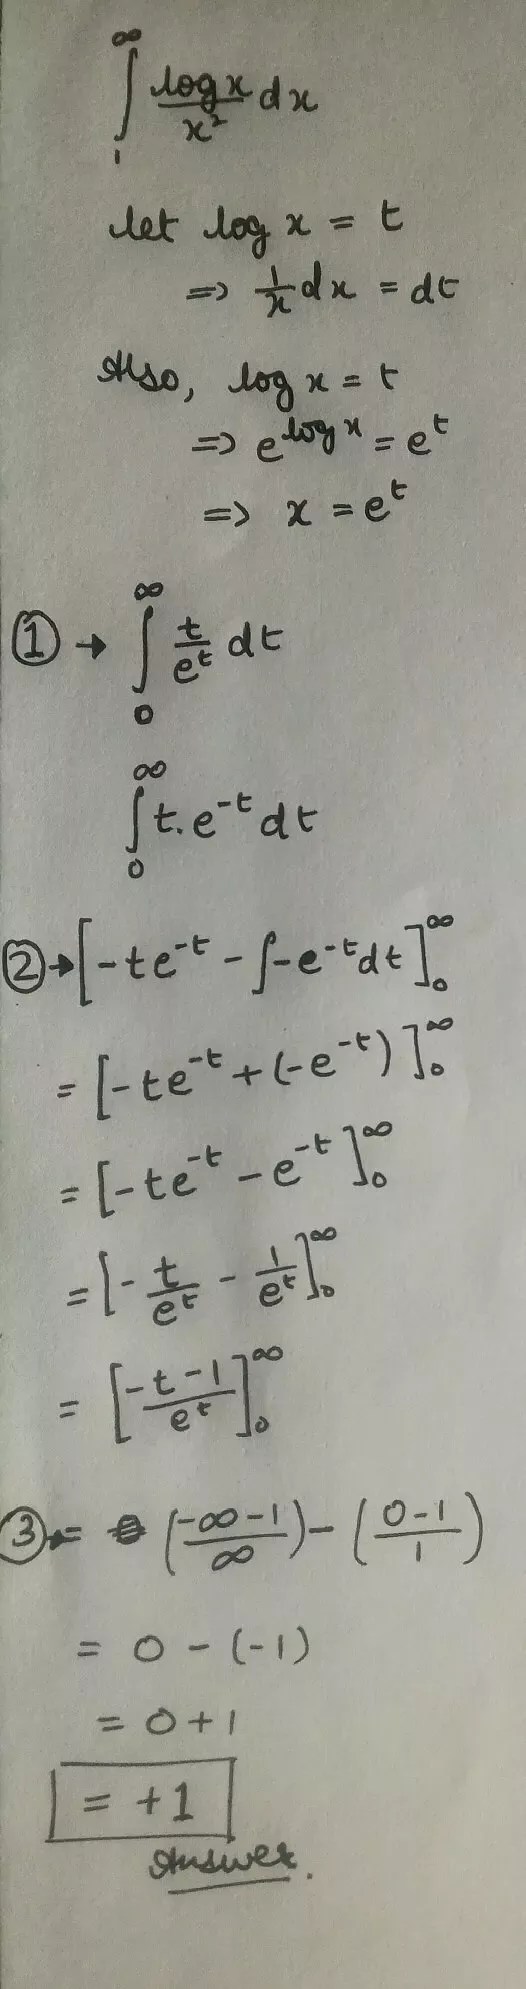 ∫₁^∞ log x / x² dx
let log x = t
=> 1/x dx = dt
Also, log x = t
=> e^{log x} = e^t
=> x = e^t
① → ∫₀^∞ t/e^t dt
∫₀^∞ t. e^{-t} dt
② → [-te^{-t} - ∫-e^{-t} dt]₀^∞
= [-te^{-t} + (-e^{-t})]₀^∞
= [-te^{-t} - e^{-t}]₀^∞
= [-t/e^t - 1/e^t]₀^∞
= [(-t-1)/e^t]₀^∞
③ → = ((-∞-1)/∞) - ((0-1)/1)
= 0 - (-1)
= 0 + 1
= +1
Answer.